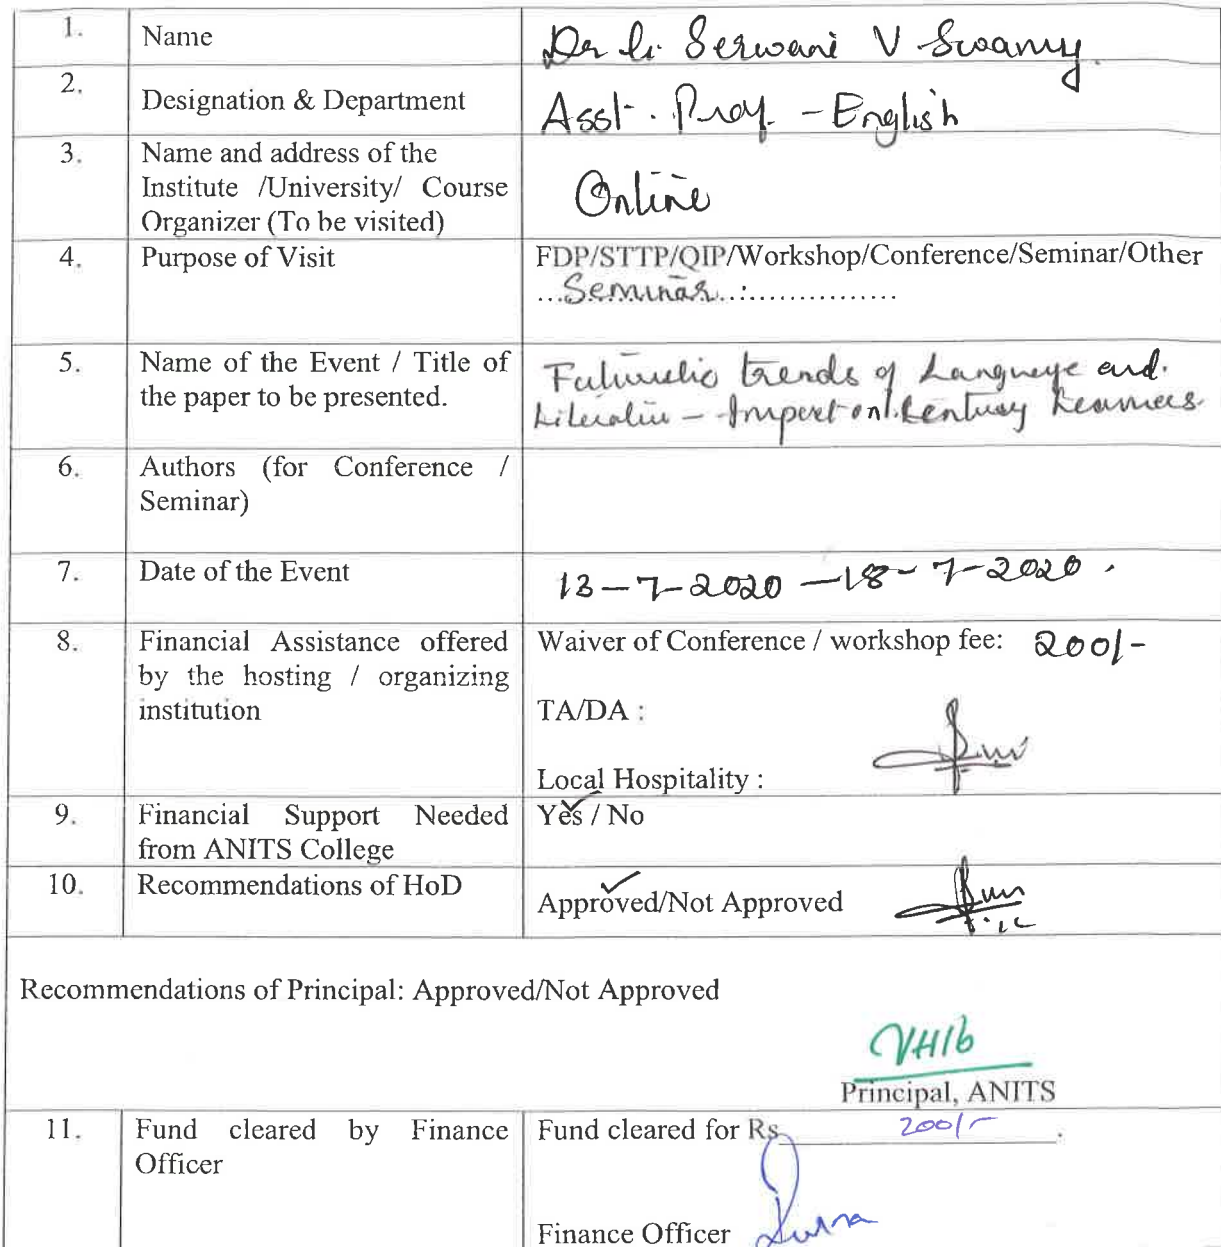 1. Name Dr Serwani V Swamy
2. Designation & Department Asst. Prof. - English
3. Name and address of the
Institute /University/ Course
Organizer (To be visited) Online
4. Purpose of Visit FDP/STTP/QIP/Workshop/Conference/Seminar/Other
...Seminar...:...............
5. Name of the Event / Title of
the paper to be presented. trends of Language and
- Impact on Century Learners
6. Authors (for Conference /
Seminar)
7. Date of the Event 13-7-2020 - 18-7-2020.
8. Financial Assistance offered
by the hosting / organizing
institution
Waiver of Conference / workshop fee: 200/-
TA/DA :
Local Hospitality :
9. Financial Support Needed
from ANITS College
Yes / No
10. Recommendations of HoD Approved/Not Approved
Recommendations of Principal: Approved/Not Approved
Principal, ANITS
11. Fund cleared by Finance
Officer
Fund cleared for Rs 200/- .
Finance Officer